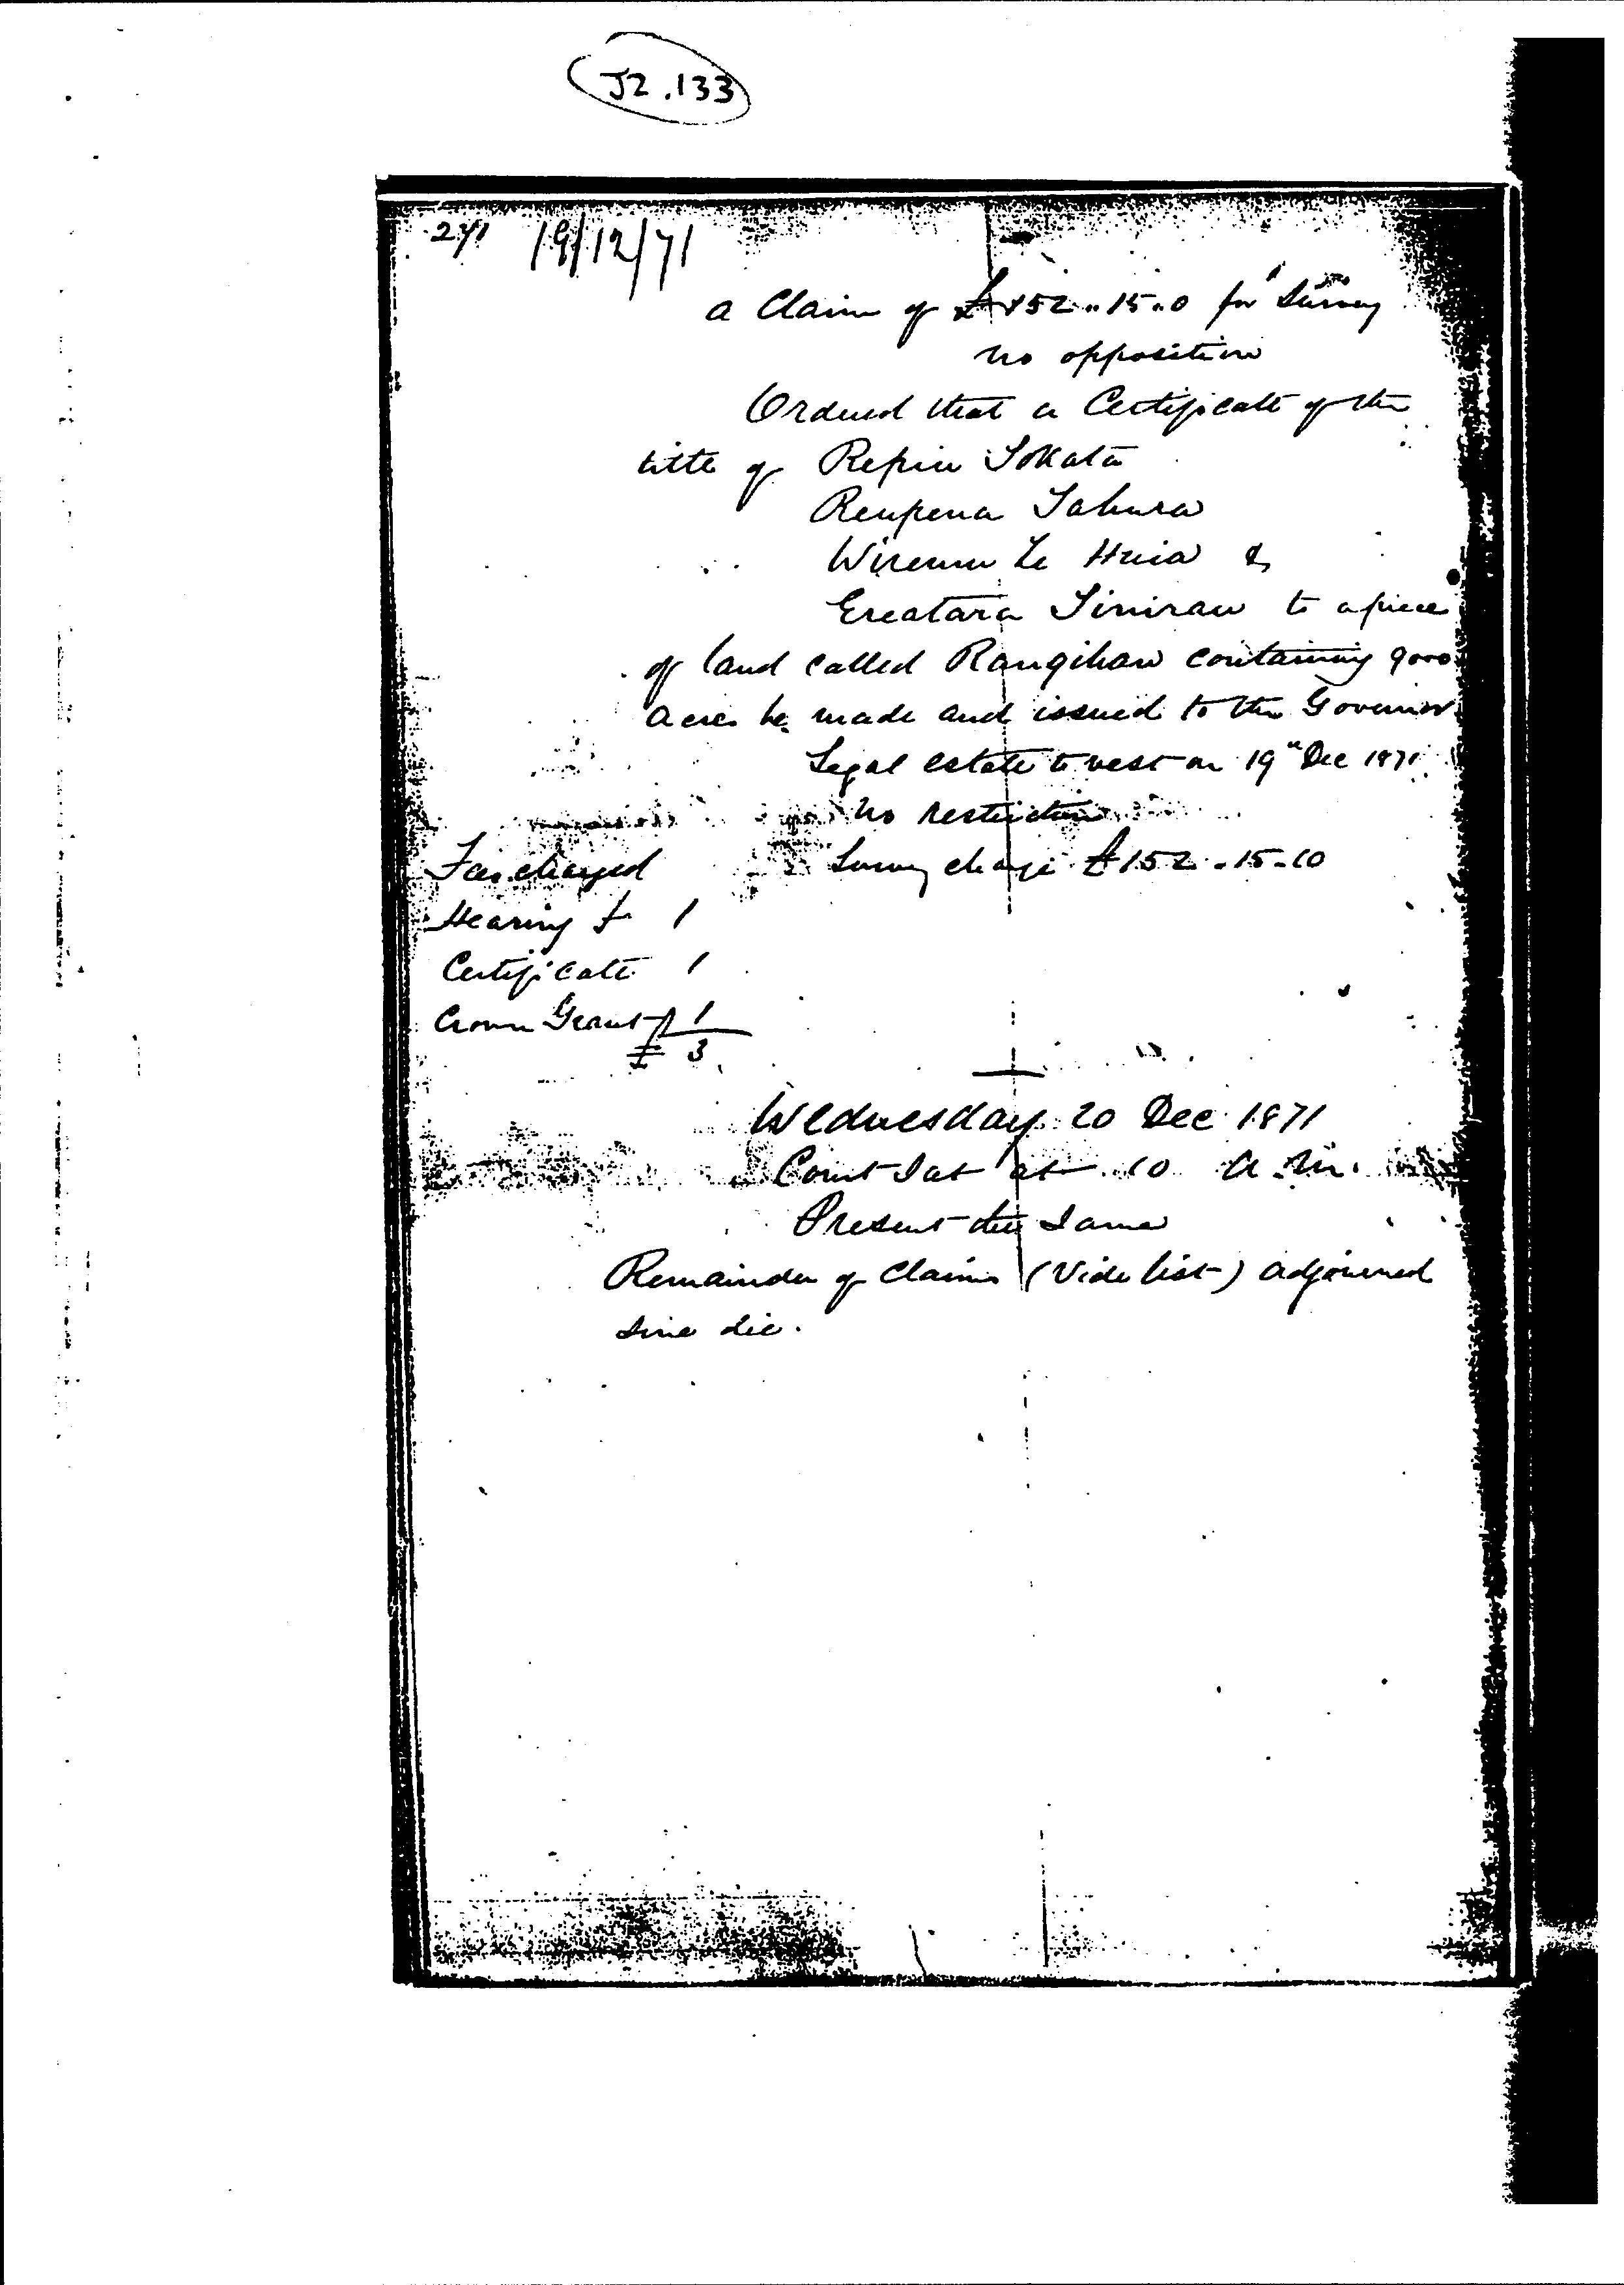 J2.133
271 19/12/71
a Claim of £152..15..0 for Survey
no opposition
Ordered that a Certificate of the
title of Repiu Tokata
Reupena Tahura
Wiremu Te Huia &
Ereatara Tinirau to a piece
of land called Rangihau containing 9000
acres be made and issued to the Governor
Legal estate to vest on 19th Dec 1871
no restriction
Fees charged Survey charge £152.-15-10
Hearing £ 1
Certificate 1
Crown Grant 1
£ 3
Wednesday 20 Dec 1871
Court Sat at 10 a.m.
Present the Same
Remainder of Claims (Vide list) adjourned
Sine die.